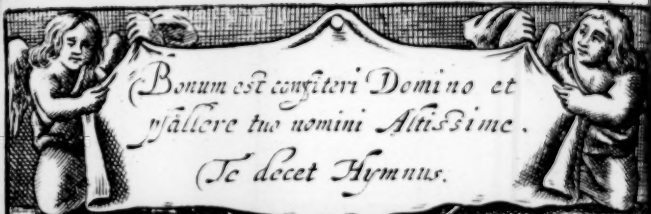 Bonum est confiteri Domino et
psallere tuo nomini Altissime.
Te decet Hymnus.